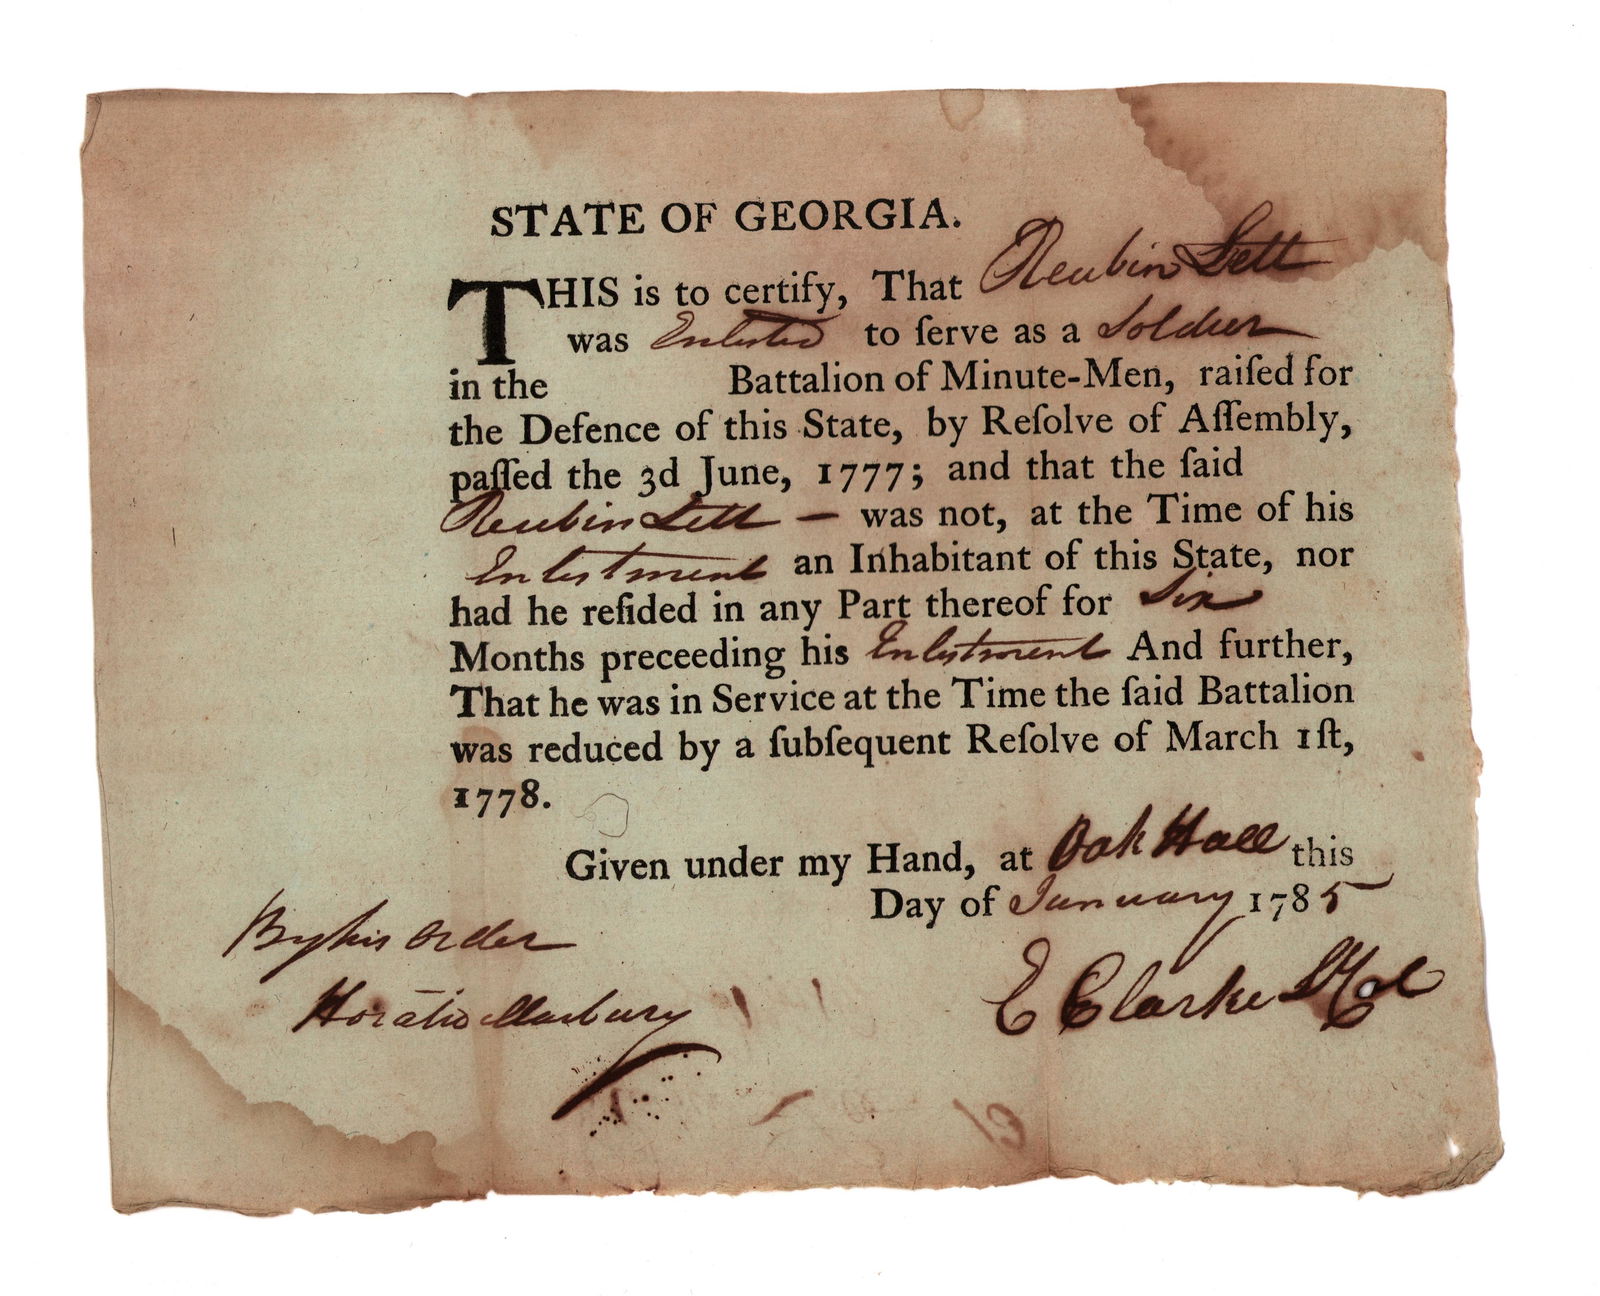 STATE OF GEORGIA.
THIS is to certify, That Reubin Lett
was Enlisted to ſerve as a Soldier
in the Battalion of Minute-Men, raiſed for
the Defence of this State, by Reſolve of Aſſembly,
paſſed the 3d June, 1777; and that the ſaid
Reubin Lett — was not, at the Time of his
Enlistment an Inhabitant of this State, nor
had he reſided in any Part thereof for Six
Months preceeding his Enlistment And further,
That he was in Service at the Time the ſaid Battalion
was reduced by a ſubſequent Reſolve of March 1ſt,
1778.
Given under my Hand, at Oak Hall this
Day of January 1785
By his Order
Horatio Marbury
E Clarke